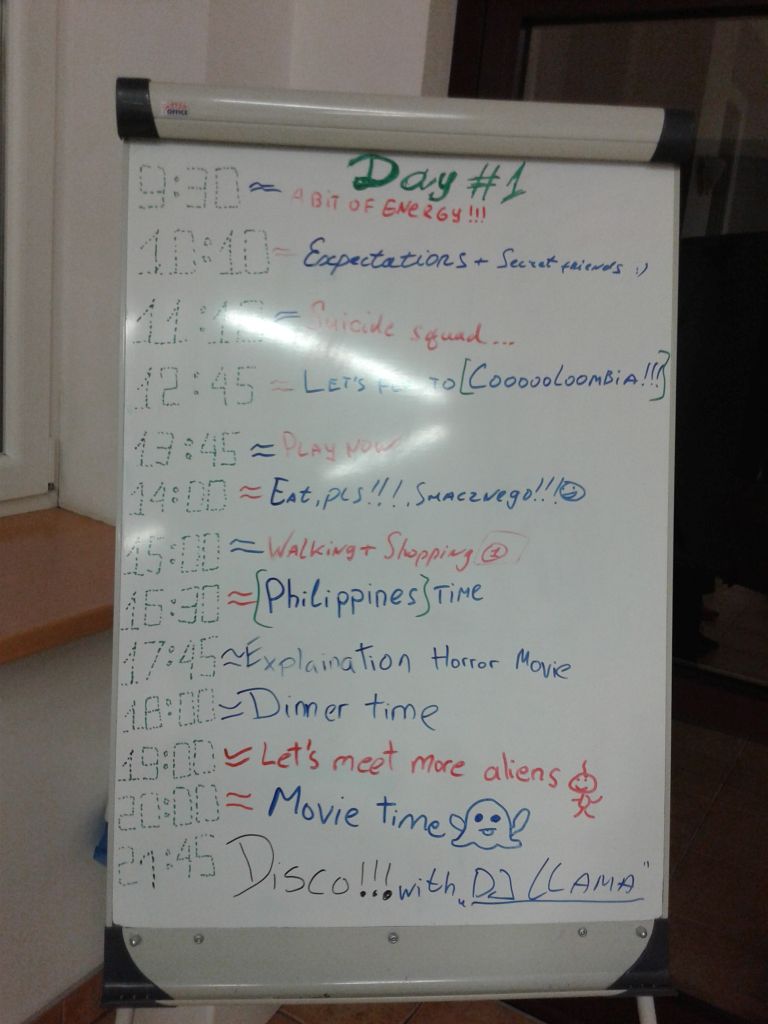 Day #1
9:30 ≈ A BIT OF ENERGY!!!
10:10 ≈ Expectations + Secret friends :)
11:12 ≈ Suicide squad...
12:45 ≈ LET'S TO [COOOOOLOOMBIA!!!]
13:45 ≈ PLAY NOW
14:00 ≈ EAT, PLS!!!, SMACZNEGO!!!
15:00 ≈ WALKING + Shopping
16:30 ≈ {Philippines} TIME
17:45 ≈ Explaination Horror Movie
18:00 ≈ Dinner time
19:00 ≈ Let's meet more aliens
20:00 ≈ Movie time
21:45 Disco!!! with „DJ LLAMA"